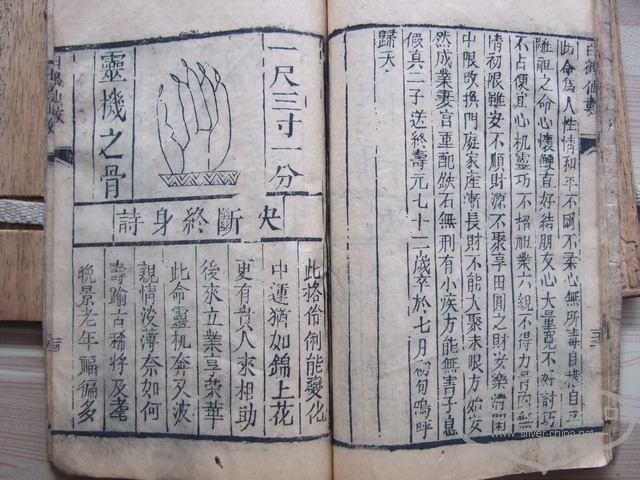 白鶴仙數
此命為人性情和平不剛不柔心無所毒自構自
雖祖之命心懷鯁直好結朋友心大量寬不好討巧
不占便宜心机靈巧不招祖業六親不得力骨肉無
情初限雖安不順財源不聚享田園之財安樂清閑
中限改換門庭家產漸長財不能大聚末限方始安
然成業妻宮重配鉄石無刑有小疾方能無害子息
假真二子送終壽元七十二歲卒於七月初旬嗚呼
歸天
一尺三寸一分
靈機之骨
决斷終身詩
此格伶俐能變化
中運猶如錦上花
更有貴人來相助
後來立業享榮華
此命靈机奔又波
親情淡薄奈如何
壽踰古稀將及耄
晚景老年福徧多
白鶴仙數
www.silver-china.net